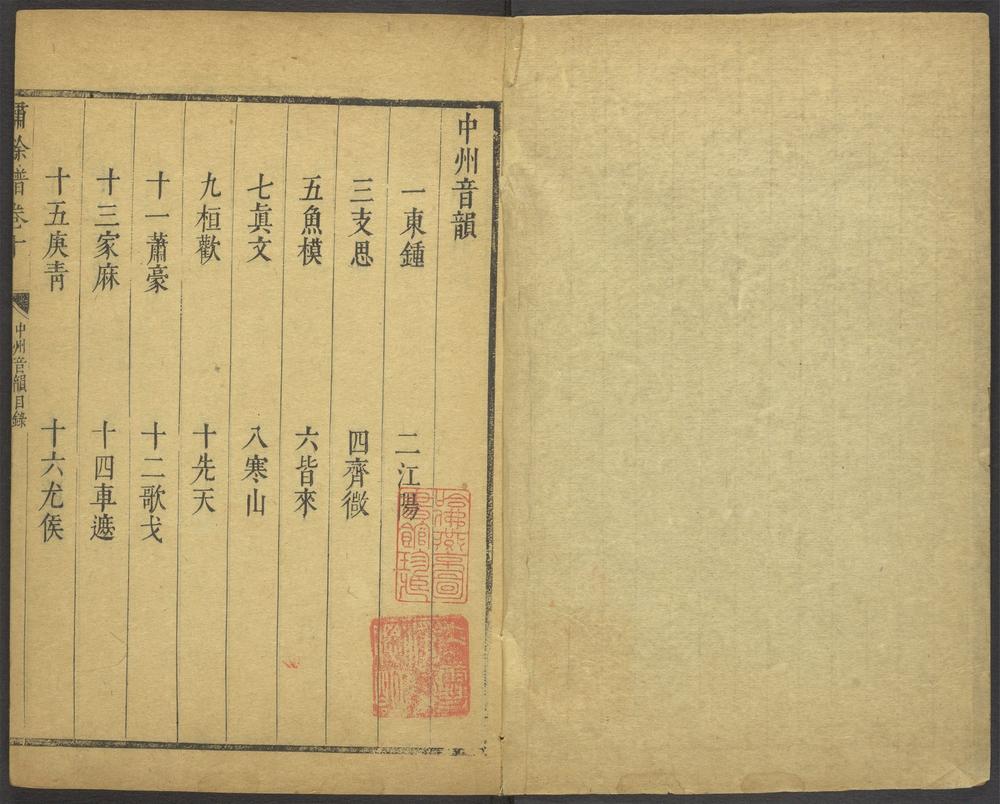 中州音韻
一東鍾 二江陽
三支思 四齊微
五魚模 六皆來
七真文 八寒山
九桓歡 十先天
十一蕭豪 十二歌戈
十三家麻 十四車遮
十五庚青 十六尤侯
嘯餘譜卷十 中州音韻目錄
哈佛燕京圖書館珍藏